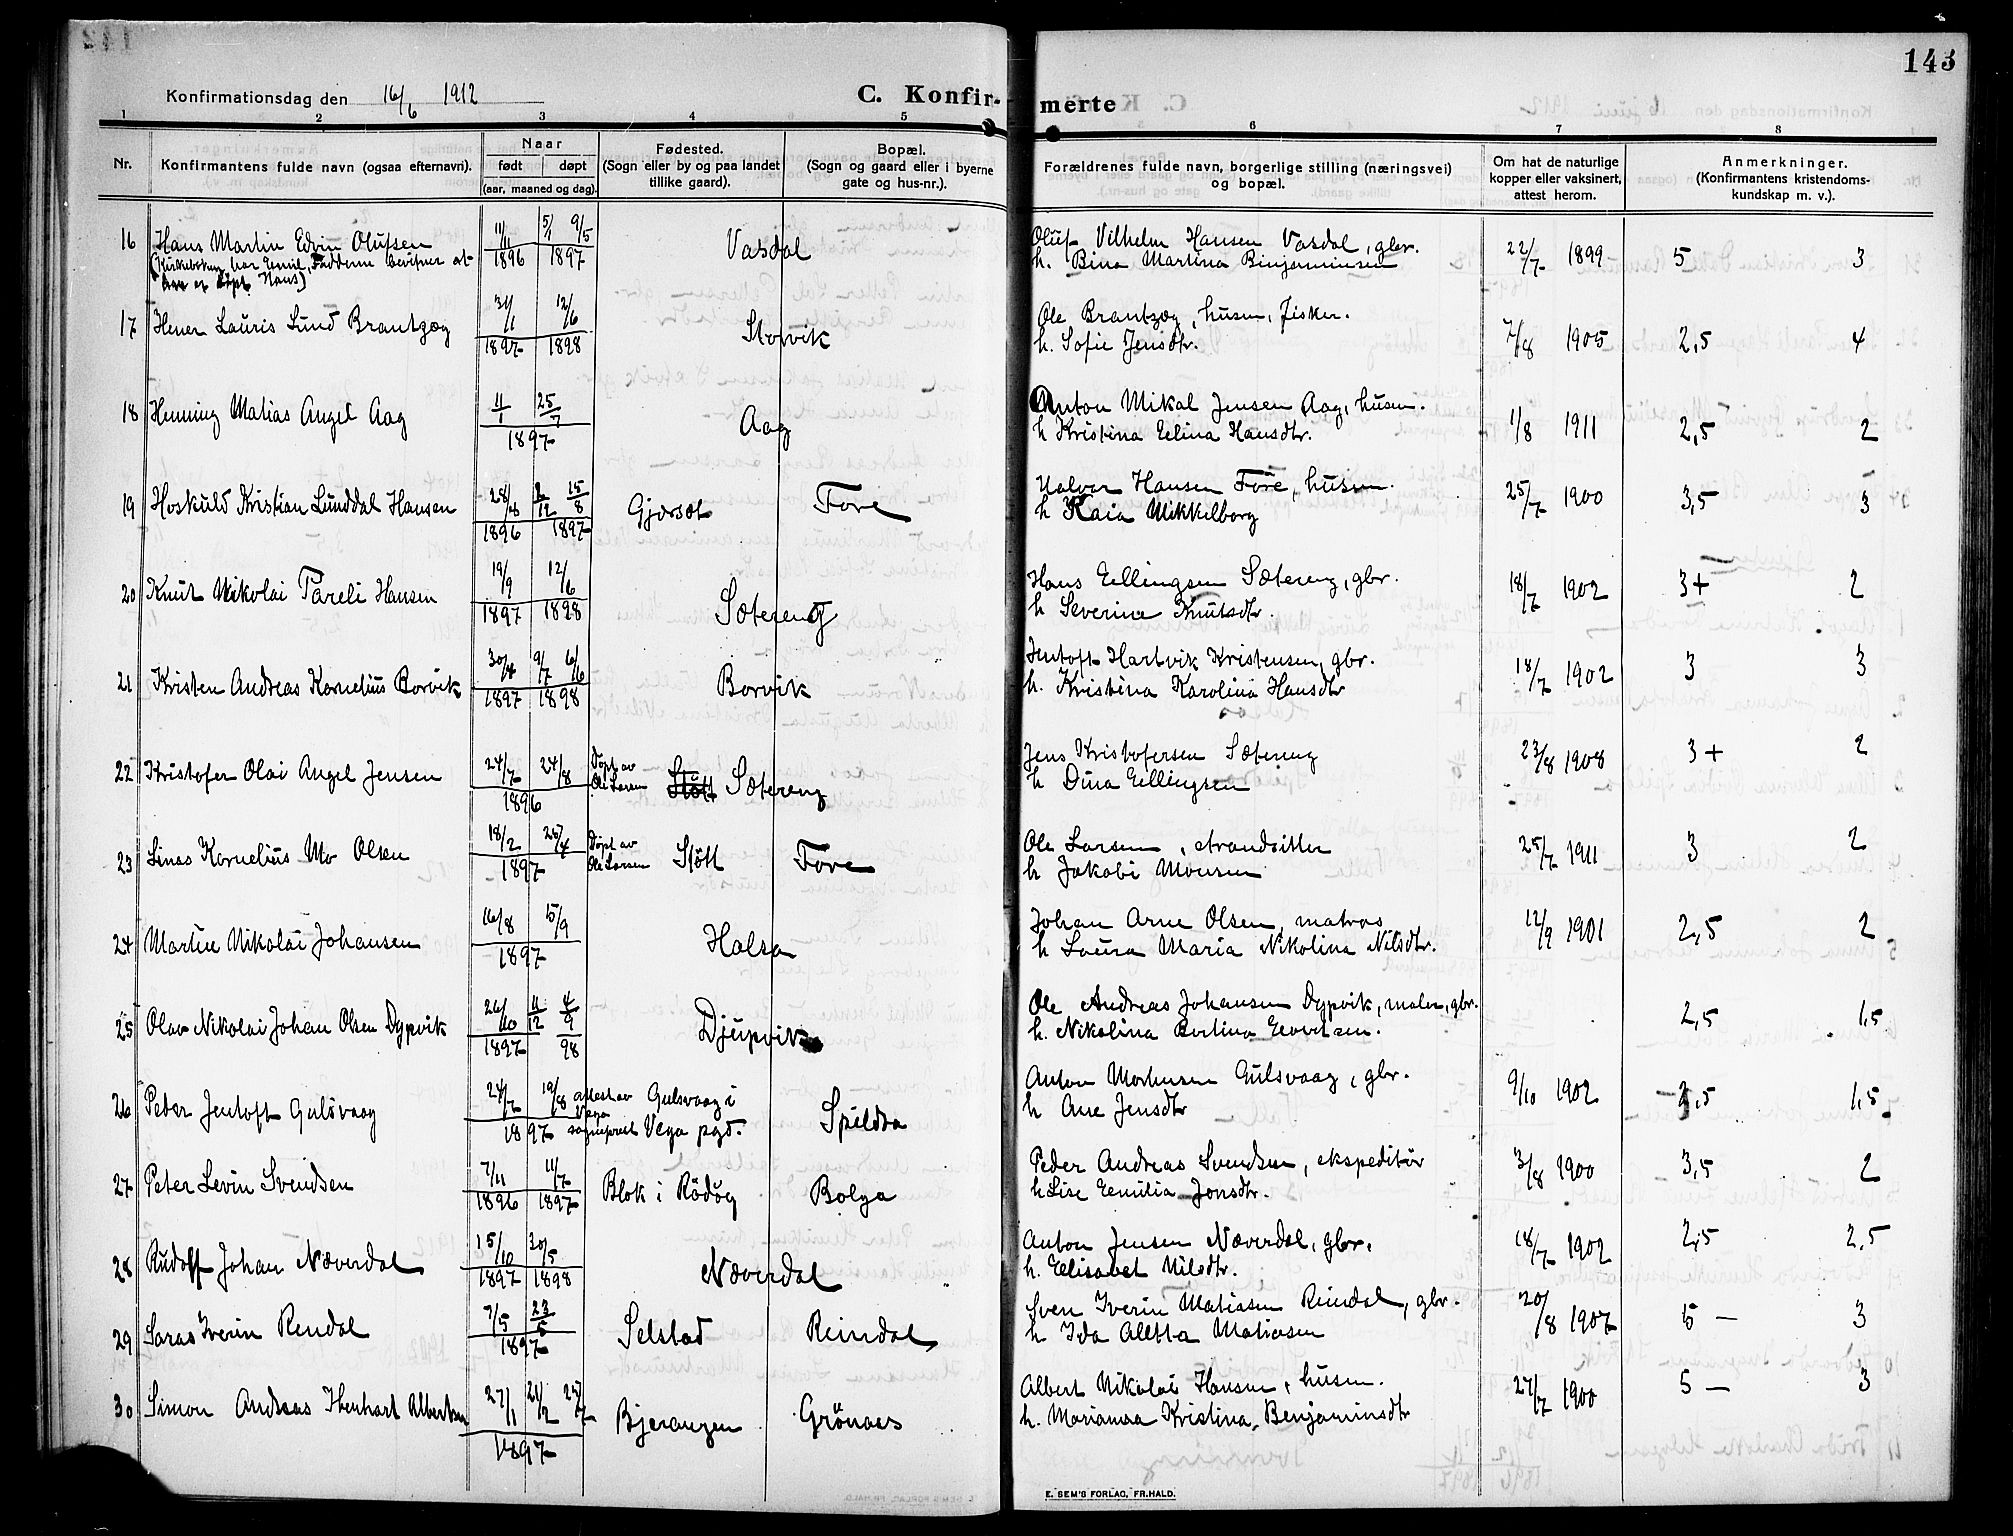 143
Konfirmationsdag den 16/6 1912
C. Konfir- merte
1 2 3 4 5 6 7 8
Nr. Konfirmantens fulde navn (ogsaa efternavn). Naar født døpt (aar, maaned og dag). Fødested. (Sogn eller by og paa landet tillike gaard). Bopæl. (Sogn og gaard eller i byerne gate og hus-nr.). Forældrenes fulde navn, borgerlige stilling (næringsvei) og bopæl. Om hat de naturlige kopper eller vaksinert, attest herom. Anmerkninger. (Konfirmantens kristendoms- kundskap m. v.).
16 Hans Martin Edvin Olufsen 11/11 1896 5/1 9/5 1897 Vasdal Oluf Vilhelm Hansen Vasdal, gbr. 22/7 1899 5 3
(Kirkeboken har Emil, Fadderne bevitner at
er døpt Hans) h. Bina Martina Binjaminsen
17 Hener Lauris Lund Brantzæg 31/1 1897 12/6 1898 Storvik Ole Brantzæg, husm, fisker. 7/8 1905 2,5 4
h. Sofie Jensdtr.
18 Henning Matias Angel Aag 11/1 25/7 1897 Aag Anton Mikal Jensen Aag, husm. 1/8 1911 2,5 2
h Kristina Elina Hansdtr.
19 Hoskuld Kristian Lunddal Hansen 28/8 1896 2/12 15/8 1897 Gjerset Fore Halvor Hansen Fore, husm. 25/7 1900 3,5 3
h Kaia Mikkelborg
20 Knut Nikolai Pareli Hansen 19/9 1897 12/6 1898 Sætereng Hans Ellingsen Sætereng, gbr. 18/7 1902 3+ 2
h Severine Knutsdtr.
21 Kristen Andreas Kornelius Borvik 30/4 1897 9/7 6/6 1898 Borvik Jentoft Hartvik Kristensen, gbr. 18/7 1902 3 3
h. Kristina Karolina Hansdtr
22 Kristofer Olai Angel Jensen 24/7 24/8 1896 Døpt av Ole Larsen Støtt Sætereng Jens Kristofersen Sætereng 23/8 1908 3+ 2
h Dina Ellingsen
23 Linas Kornelius Mo Olsen 18/2 25/4 1897 Døpt av Ole Larsen Støtt Fore Ole Larsen, strandsitter 25/7 1911 3 2
h Jakobi Monsen
24 Martin Nikolai Johansen 16/8 15/9 1897 Halsa Johan Arne Olsen, matros 12/9 1901 2,5 2
h Laura Maria Nikolina Nilsdtr.
25 Olav Nikolai Johan Olsen Dypvik 26/10 1897 11/12 4/9 98 Djupvik Ole Andreas Johansen Dypvik, maler, gbr. 2,5 1,5
h. Nikolina Bertina Evertsen.
26 Peter Jentoft Gulsvaag 24/7 19/8 1897 attest av Vega sogneprest Gulsvaag i Vega pgd. Spildra Anton Mortensen Gulsvaag, gbr. 9/10 1902 2,5 1,5
h Ane Jensdtr
27 Peter Levin Svendsen 7/11 1896 11/7 1897 Blok i Rödöy Bolga Peder Andreas Svendsen, ekspeditør 3/8 1900 3,5 2
h Lise Emilia Jonsdtr.
28 Rudolf Johan Næverdal 15/10 1897 30/5 1898 Næverdal Anton Jensen Næverdal, gbr. 18/7 1902 2,5 2,5
h. Elisabet Nilsdtr.
29 Saras Iverin Reindal 7/5 23/5 1897 Selstad Reindal Sven Iverin Matiasen Reindal, gbr. 20/8 1907 5 — 3
h Ida Aletta Matiasen
30 Simon Andreas Ibenhart Albertsen 27/1 21/2 25/7 1897 Bjerangen Grönaes Albert Nikolai Hansen, husm. 27/7 1900 5 — 3
h. Marianna Kristina Benjaminsdtr
E. SEM'S FORLAG, FR.HALD.